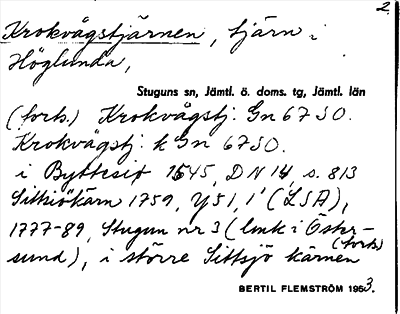 2.
Krokvågstjärnen, tjärn i
Höglunda,
Stuguns sn, Jämtl. ö. doms. tg, Jämtl. län
(forts.) Krokvågstj: Gn 67 SO.
Krokvågstj: k Gn 67 SO.
i Byttesit 1645, DN 14, s. 813
Sittsiökärn 1759, Y51, 1¹ (LSA),
1777-89, Stugun nr 3 (lmk i Öster-
sund), i större Sittsjö kärnen (forts.)
BERTIL FLEMSTRÖM 1963.